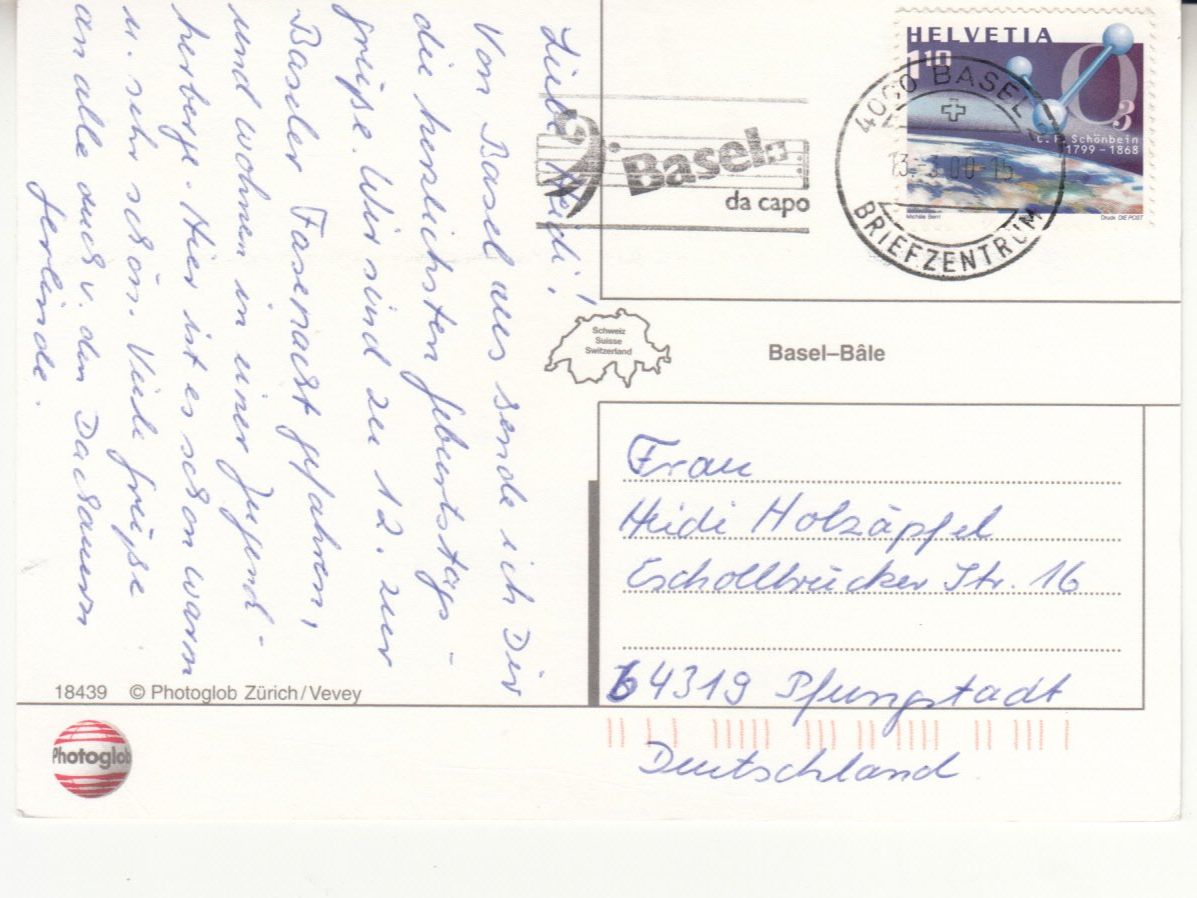 Liebe Heidi!
Von Basel aus sende ich Dir
die herzlichsten Geburtstags-
grüße. Wir sind zu 12. zur
Basler Fasenacht gefahren,
und wohnen in einer Jugend-
herberge. Hier ist es schon warm
u. sehr schön. Viele Grüße
an alle auch v. den Dachauern
Gerlinde.
HELVETIA
110
O3
C. F. Schönbein
1799 – 1868
Michèle Berri
Druck DIE POST
4000 BASEL 2
13.-3.00-15
BRIEFZENTRUM
Basel
da capo
Schweiz
Suisse
Switzerland
Basel–Bâle
Frau
Heidi Holzäpfel
Eschollbrücker Str. 16
64319 Pfungstadt
Deutschland
18439 © Photoglob Zürich/Vevey
Photoglob